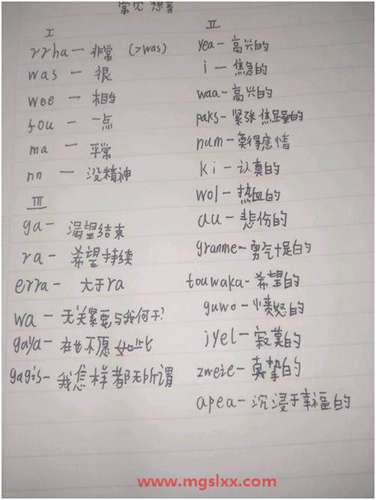 常见 想音
I
rrha — 非常 (>was)
was — 很
wee — 相当
fou — 一点
ma — 平常
nn — 没精神
II
yea — 高兴的
i — 焦急的
waa — 高兴的
paks — 紧张 焦虑的
num — 莫得感情
ki — 认真的
wol — 热血的
au — 悲伤的
granme — 勇气十足的
touwaka — 希望的
guwo — 愤怒的
jyel — 寂寞的
zweie — 真挚的
apea — 沉浸于幸福的
III
ga — 渴望结束
ra — 希望持续
erra — 大于ra
wa — 无关紧要与我何干?
gaya — 再也不愿如此
gagis — 我怎样都无所谓
www.mgslxx.com